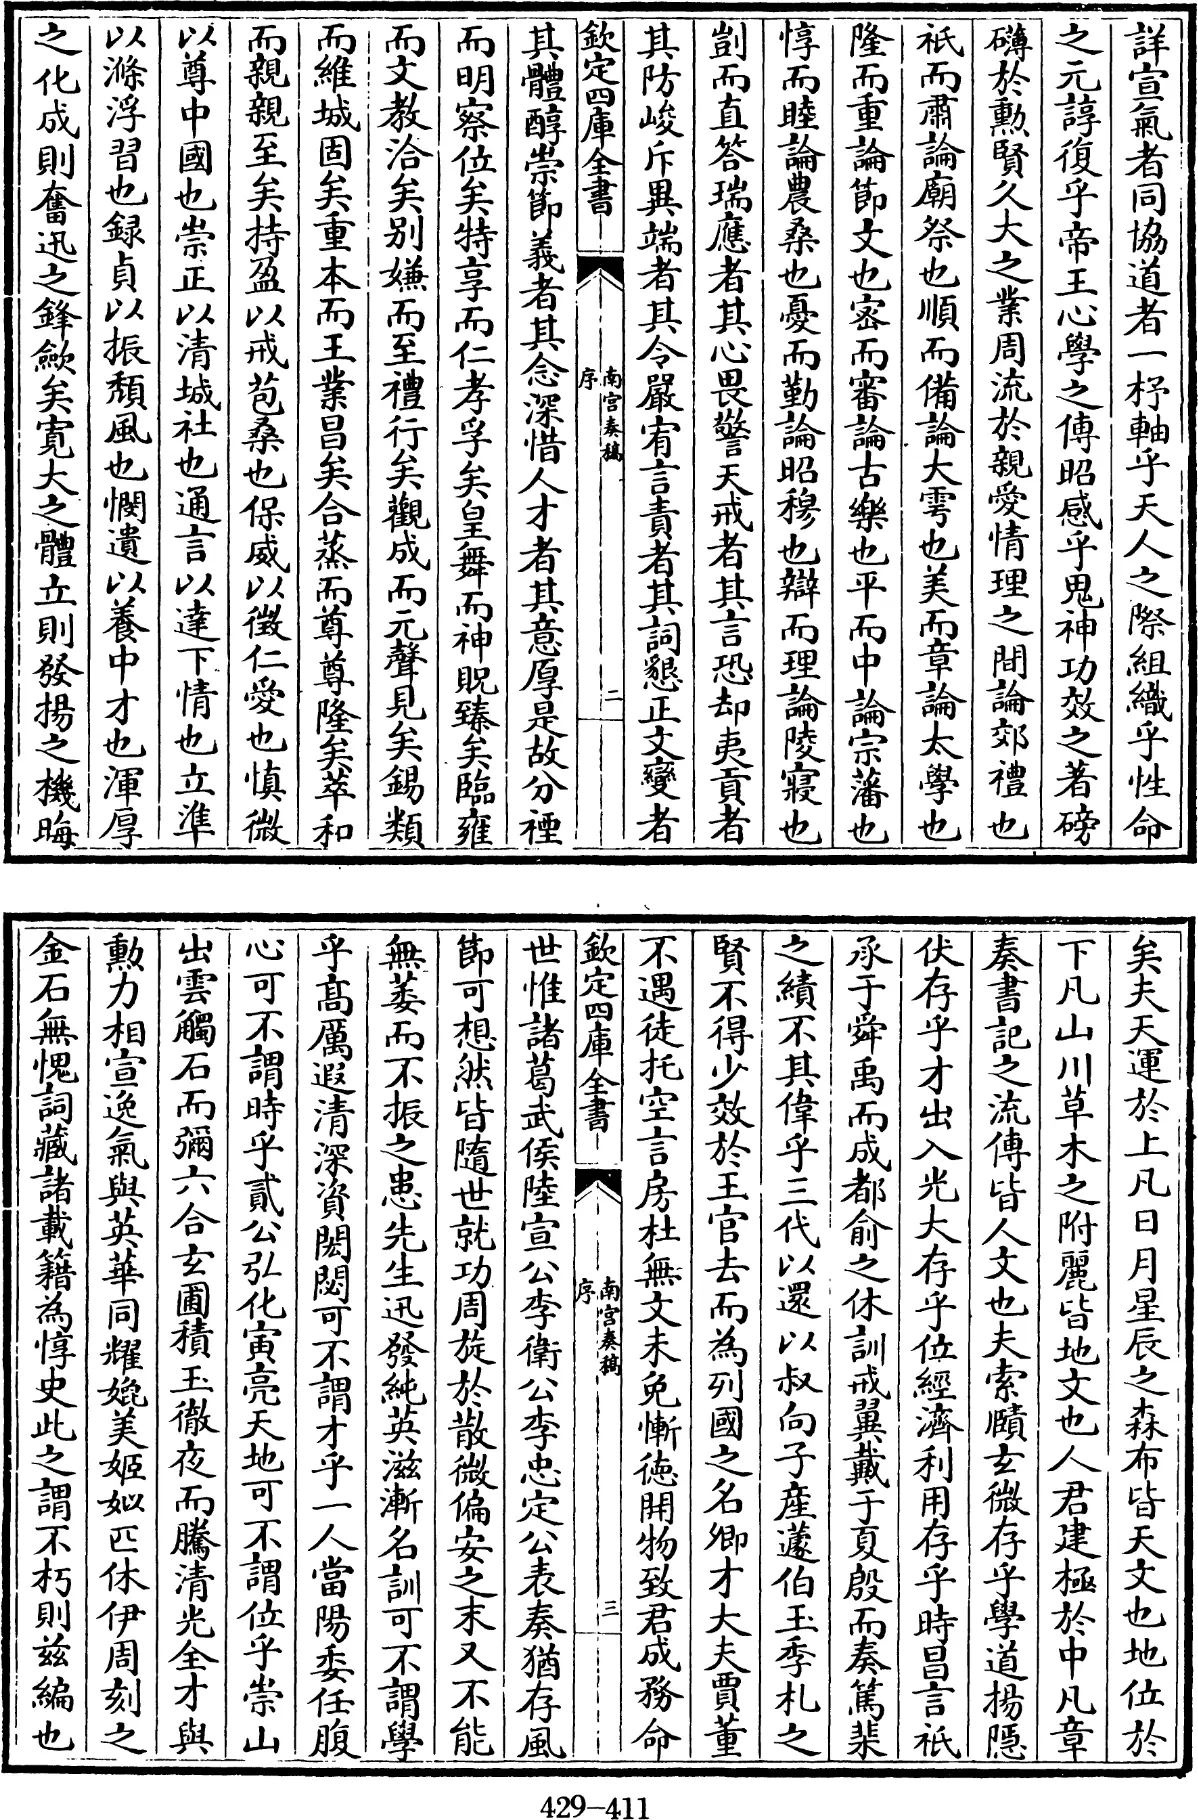 詳宣氣者同協道者一杼軸乎天人之際組織乎性命
之元諄復乎帝王心學之傳昭感乎鬼神功效之著磅
礴於勲賢久大之業周流於親愛情理之間論郊禮也
祇而肅論廟祭也順而備論大雩也美而章論太學也
隆而重論節文也密而審論古樂也平而中論宗藩也
惇而睦論農桑也憂而勤論昭穆也辯而理論陵寢也
剴而直答瑞應者其心畏警天戒者其言恐却夷貢者
其防峻斥異端者其令嚴宥言責者其詞懇正文變者
欽定四庫全書
南宫奏稿
序
二
其體醇崇節義者其念深惜人才者其意厚是故分禋
而明察位矣特享而仁孝孚矣皇舞而神貺臻矣臨雍
而文教洽矣别嫌而至禮行矣觀成而元聲見矣錫類
而維城固矣重本而王業昌矣合蒸而尊尊隆矣萃和
而親親至矣持盈以戒苞桑也保威以徴仁愛也慎微
以尊中國也崇正以清城社也通言以達下情也立準
以滌浮習也録貞以振頽風也憫遺以養中才也渾厚
之化成則奮迅之鋒歛矣寛大之體立則發揚之機晦
矣夫天運於上凡日月星辰之森布皆天文也地位於
下凡山川草木之附麗皆地文也人君建極於中凡章
奏書記之流傳皆人文也夫索賾玄微存乎學道揚隱
伏存乎才出入光大存乎位經濟利用存乎時昌言祇
承于舜禹而成都俞之休訓戒翼戴于夏殷而奏篤棐
之績不其偉乎三代以還以叔向子產蘧伯玉季札之
賢不得少效於王官去而為列國之名卿才大夫賈董
不遇徒托空言房杜無文未免慚徳開物致君成務命
欽定四庫全書
南宫奏稿
序
三
世惟諸葛武侯陸宣公李衛公李忠定公表奏猶存風
節可想然皆隨世就功周旋於散微偏安之末又不能
無萎而不振之患先生迅發純英滋漸名訓可不謂學
乎高厲遐清深資閎閟可不謂才乎一人當陽委任腹
心可不謂時乎貳公弘化寅亮天地可不謂位乎崇山
出雲觸石而彌六合玄圃積玉徹夜而騰清光全才與
勲力相宣逸氣與英華同耀媲美姬姒匹休伊周刻之
金石無愧詞藏諸載籍為惇史此之謂不朽則兹編也
429-411